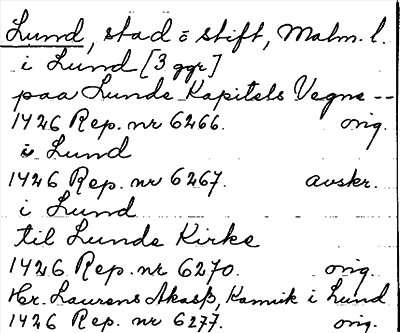 Lund, stad o stift, Malm. l.
i Lund [3 ggr]
paa Lunde Kapitels Vegne --
1426 Rep. nr 6266. orig.
i Lund
1426 Rep. nr 6267. avskr.
i Lund
til Lunde Kirke
1426 Rep. nr 6270. orig.
Hr. Laurens Akasß, Kannik i Lund
1426 Rep. nr 6277. orig.